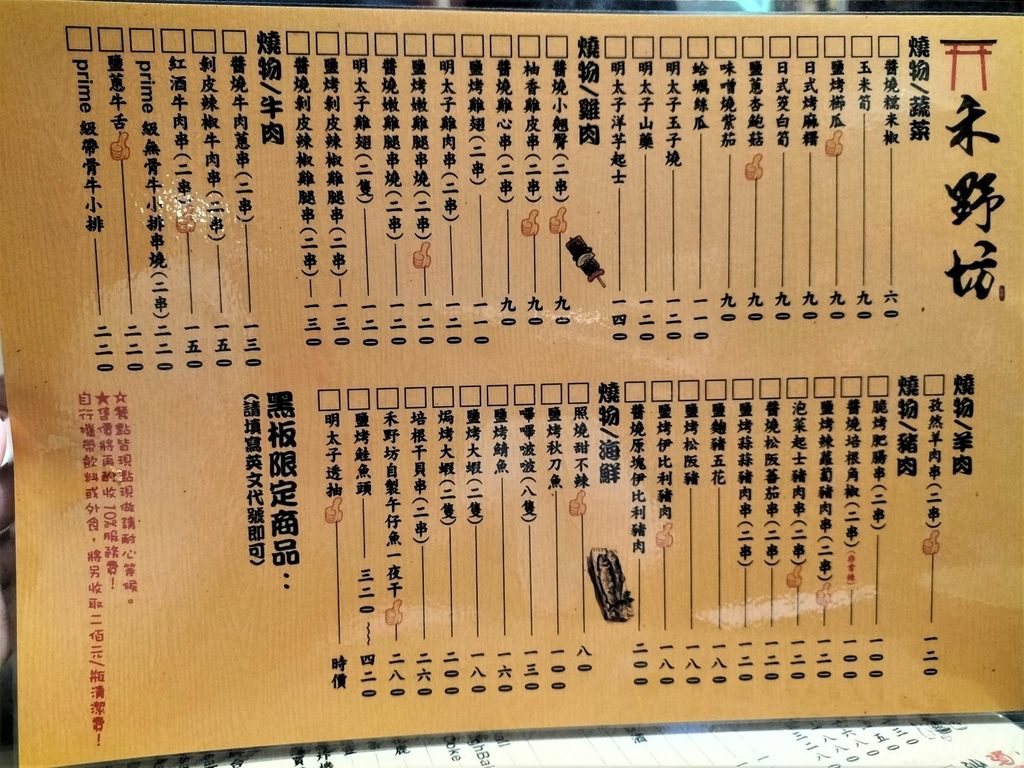 禾野坊
燒物/蔬菜
醬燒糯米椒 六〇
玉米筍 九〇
鹽烤櫛瓜 九〇
日式烤麻糬 九〇
日式筊白筍 九〇
鹽蔥杏鮑菇 九〇
味噌燒紫茄 九〇
蛤蠣絲瓜 一一〇
明太子玉子燒 一二〇
明太子山藥 一二〇
明太子洋芋起士 一四〇
燒物/雞肉
醬燒小翅臀(二串) 九〇
柚香雞皮串(二串) 九〇
醬燒雞心串(二串) 九〇
鹽烤雞翅(二串) 一一〇
明太子雞肉串(二串) 一二〇
鹽烤嫩雞腿串燒(二串) 一二〇
醬燒嫩雞腿串燒(二串) 一二〇
明太子雞翅(二隻) 一二〇
鹽烤剝皮辣椒雞腿串(二串) 一三〇
醬燒剝皮辣椒雞腿串(二串) 一三〇
燒物/牛肉
醬燒牛肉蔥串(二串) 一三〇
剝皮辣椒牛肉串(二串) 一五〇
紅酒牛肉串(二串) 一五〇
prime 級無骨牛小排串燒(二串) 二二〇
鹽蔥牛舌 二二〇
prime 級帶骨牛小排 二二〇
燒物/羊肉
孜然羊肉串(二串) 一二〇
燒物/豬肉
脆烤肥腸串(二串) 一〇〇
醬燒培根角椒(二串)(非常辣) 一二〇
鹽烤辣蘿蔔豬肉串(二串) 一二〇
泡菜起士豬肉串(二串) 一二〇
醬燒松阪蕃茄串(二串) 一二〇
鹽烤蒜蒜豬肉串(二串) 一二〇
鹽麴豬五花 一八〇
鹽烤松阪豬 一八〇
鹽烤伊比利豬肉 一八〇
醬燒原塊伊比利豬肉 二〇〇
燒物/海鮮
照燒甜不辣 八〇
鹽烤秋刀魚 一〇〇
嗶嗶啵啵(八隻) 一三〇
鹽烤鯖魚 一六〇
鹽烤大蝦(二隻) 一八〇
焗烤大蝦(二隻) 二〇〇
培根干貝串(二串) 二六〇
禾野坊自製午仔魚一夜干 二八〇
鹽烤鮭魚頭 三二〇～四二〇
明太子透抽 時價
黑板限定商品：
(請填寫英文代號即可)
☆餐點皆現點現做請耐心等候。
★售價將再酌收 10%服務費！
自行攜帶飲料或外食，將另收取二佰元/瓶清潔費！